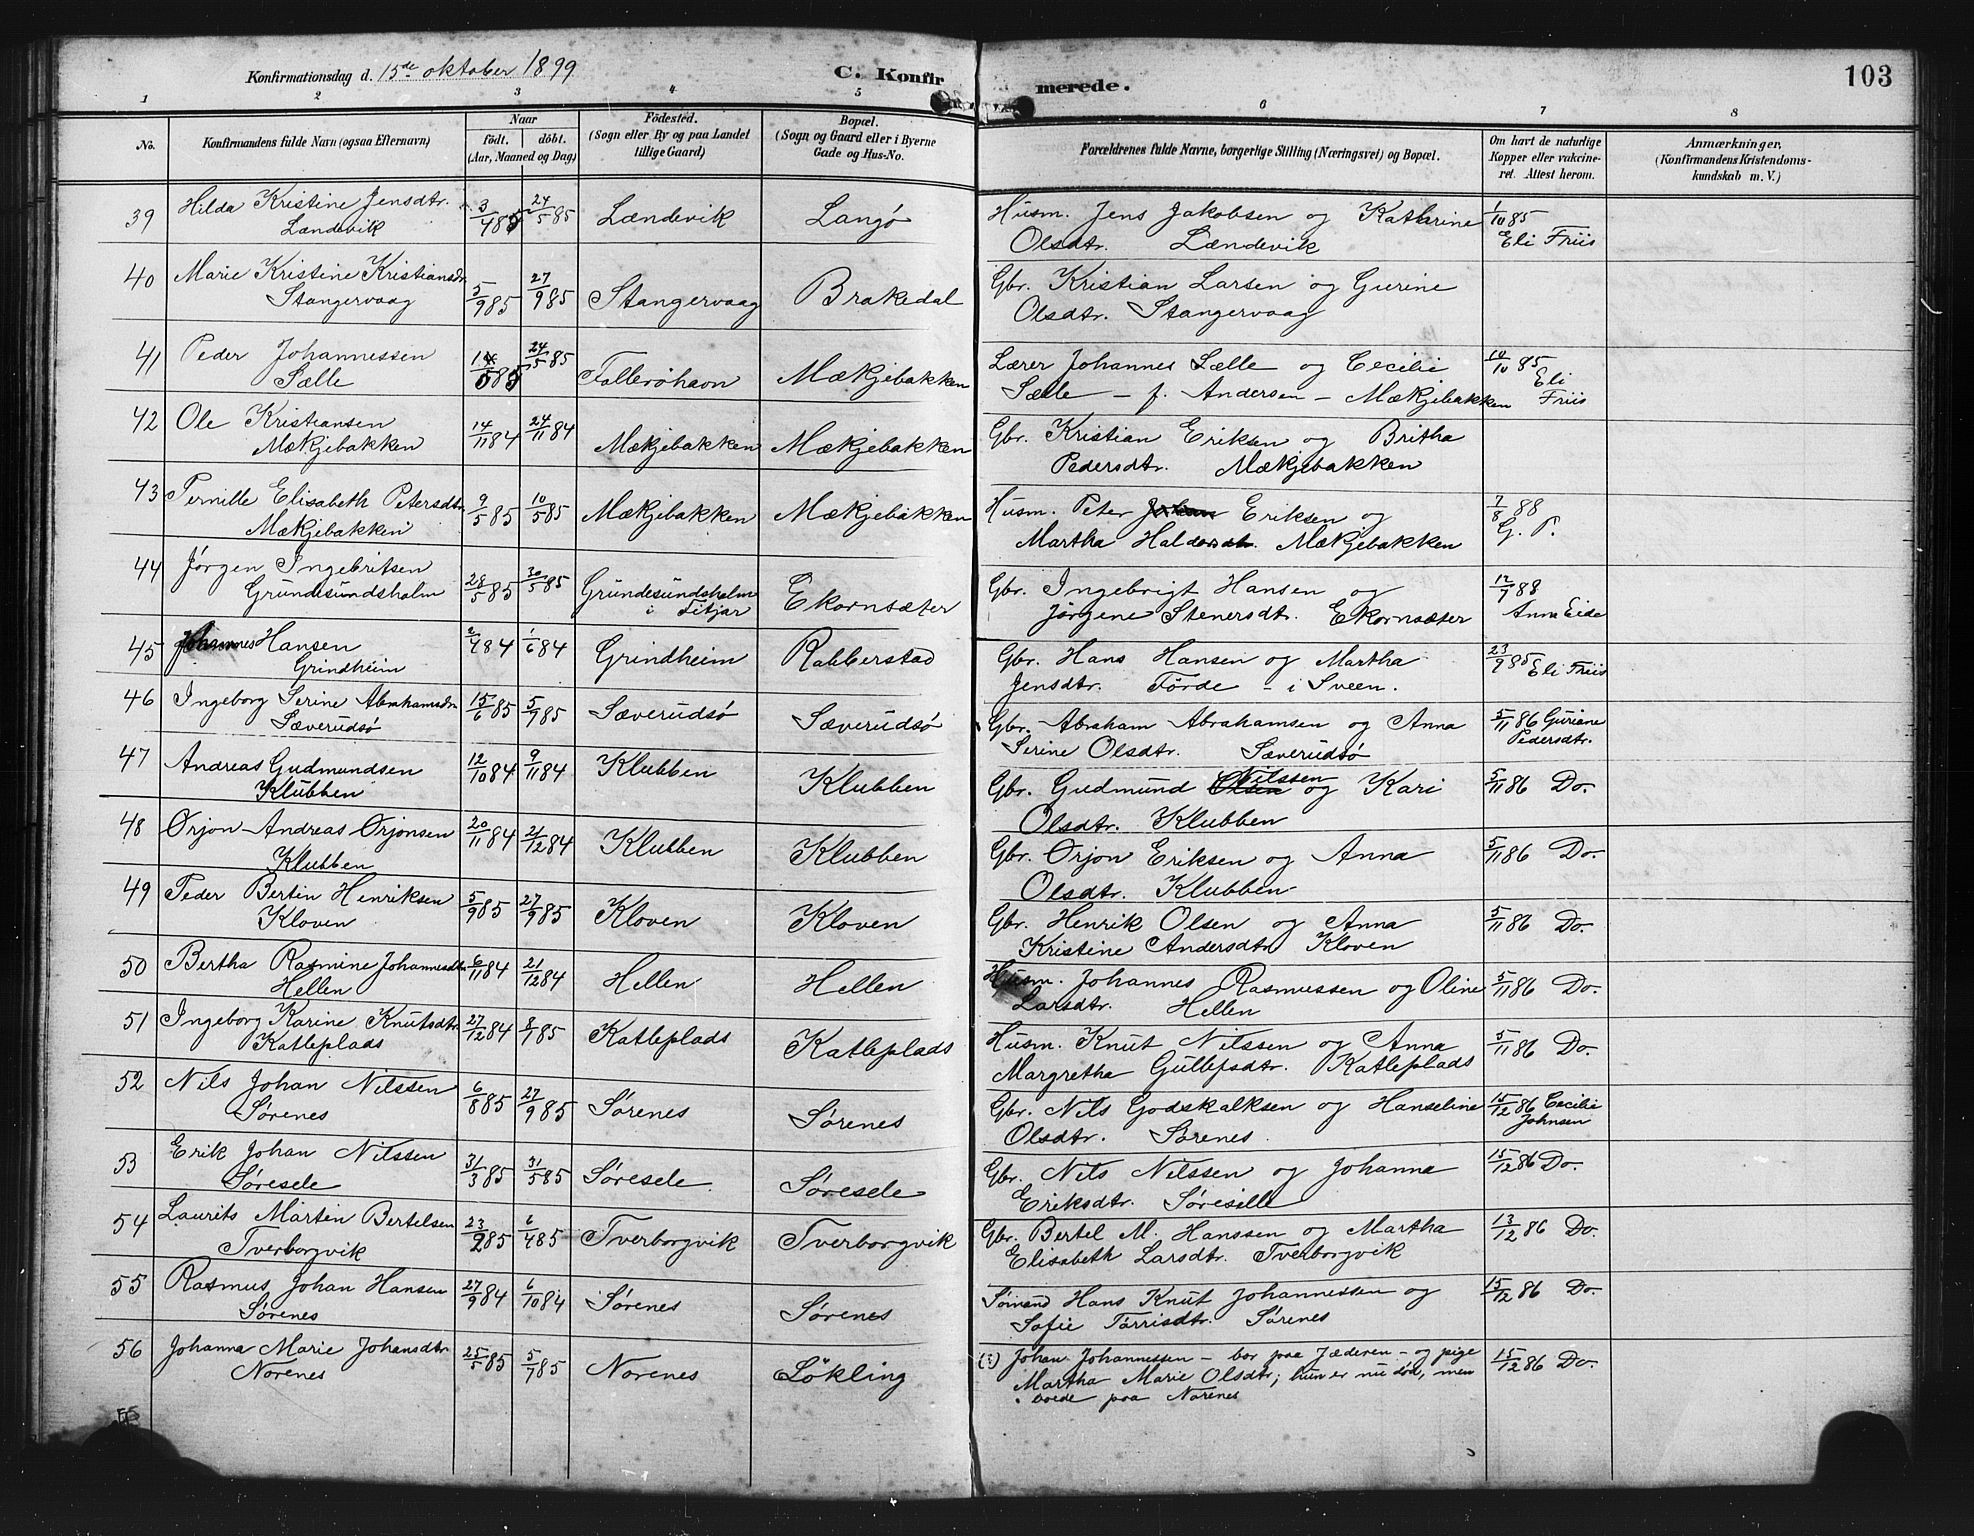 Konfirmationsdag d. 15de oktober 1899
C. Konfirmerede.
103
1 2 3 4 5 6 7 8
No.
Konfirmandens fulde Navn (ogsaa Efternavn)
Naar
födt. döbt.
(Aar, Maaned og Dag)
Födested.
(Sogn eller By og paa Landet
tillige Gaard)
Bopæl.
(Sogn og Gaard eller i Byerne
Gade og Hus-No.
Forældrenes fulde Navne, borgerlige Stilling (Næringsvei) og Bopæl.
Om havt de naturlige
Kopper eller vakcine-
ret. Attest herom.
Anmærkninger,
(Konfirmandens Kristendoms-
kundskab m. V.)
39 Hilda Kristine Jensdtr. 3/4 85 24/5 85 Lændevik Langö Husm. Jens Jakobsen og Kathrine 1/10 85
Lændevik Olsdtr. Lændevik Eli Friis
40 Marie Kristine Kristiansdr. 5/9 85 27/9 85 Stangervaag Brakedal Gbr. Kristian Larsen og Gurine
Stangervaag Olsdtr. Stangervaag
41 Peder Johannessen 14/5 85 24/5 85 Folleröhavn Mækjebakken Lærer Johannes Sælle og Cecilie 10/10 85 Eli
Sælle Sælle - f. Andersen - Mækjebakken Friis
42 Ole Kristiansen 14/11 84 24/11 84 Mækjebakken Mækjebakken Gbr. Kristian Eriksen og Britha
Mækjebakken Pedersdtr. Mækjebakken
43 Pernille Elisabeth Petersdtr. 9/5 85 10/5 85 Mækjebakken Mækjebakken Husm. Peter Eriksen og 7/8 88
Mækjebakken Martha Mækjebakken G. P.
44 Jörgen Ingebritsen 28/5 85 30/5 85 Grundesundsholm Ekornsæter Gbr. Ingebrigt Hansen og 12/7 88
Grundesundsholm i Fitjar Jörgene Stenersdt. Ekornsæter Anna Eide
45 Johannes Hansen 2/4 84 1/6 84 Grindheim Rabberstad Gbr. Hans Hansen og Martha 23/9 85 Eli Friis
Grindheim Jensdtr. Förde - i Sveen.
46 Ingeborg Serine Abrahamsdr. 15/6 85 5/7 85 Sæverudsö Sæverudsö Gbr. Abraham Abrahamsen og Anna 5/11 86 Guriane
Sæverudsö Serine Olsdtr. Sæverudsö Pedersdtr.
47 Andreas Gudmundsen 12/10 84 9/11 84 Klubben Klubben Gbr. Gudmund Olsen Nilssen og Kari 5/11 86 Do.
Klubben Olsdtr. Klubben
48 Ørjon Andreas Ørjonsen 20/11 84 21/12 84 Klubben Klubben Gbr. Ørjon Eriksen og Anna 5/11 86 Do.
Klubben Olsdtr. Klubben
49 Peder Bertin Henriksen 5/9 85 27/9 85 Kloven Kloven Gbr. Henrik Olsen og Anna 5/11 86 Do.
Kloven Kristine Andersdtr. Kloven
50 Bertha Rasmine Johannesdtr. 6/11 84 21/12 84 Hellen Hellen Husm. Johannes Rasmussen og Oline 5/11 86 Do.
Hellen Larsdtr. Hellen
51 Ingeborg Karine Knutsdtr. 27/12 84 8/1 85 Katleplads Katleplads Husm. Knut Nilssen og Anna 5/11 86 Do.
Katleplads Margretha Gullepsdtr. Katleplads
52 Nils Johan Nilssen 6/8 85 27/9 85 Sørenes Sørenes Gbr. Nils Godskalksen og Hanseline 15/12 86 Cecilie
Sørenes Olsdtr. Sørenes. Johnsen
53 Erik Johan Nilssen 31/3 85 31/5 85 Søresele Søresele Gbr. Nils Nilssen og Johanna 15/12 86 Do.
Søresele Eriksdtr. Søresille
54 Laurits Martin Bertelsen 23/2 85 6/4 85 Tverborgvik Tverborgvik Gbr. Bertel M. Hanssen og Martha 13/12 86 Do.
Tverborgvik Elisabeth Larsdtr. Tverborgvik
55 Rasmus Johan Hansen 27/9 84 6/10 84 Sørenes Sørenes Sømand Hans Knut Johannessen og 15/12 86 Do.
Sørenes Sofie Törrisdtr. Sørenes
56 Johanna Marie Johansdtr. 25/5 85 5/7 85 Norenes Lökling Johan Johannessen - bor paa Jæderen - og pige 15/12 86 Do.
Norenes Martha Marie Olsdtr; hun er nu död, men
boede paa Norenes